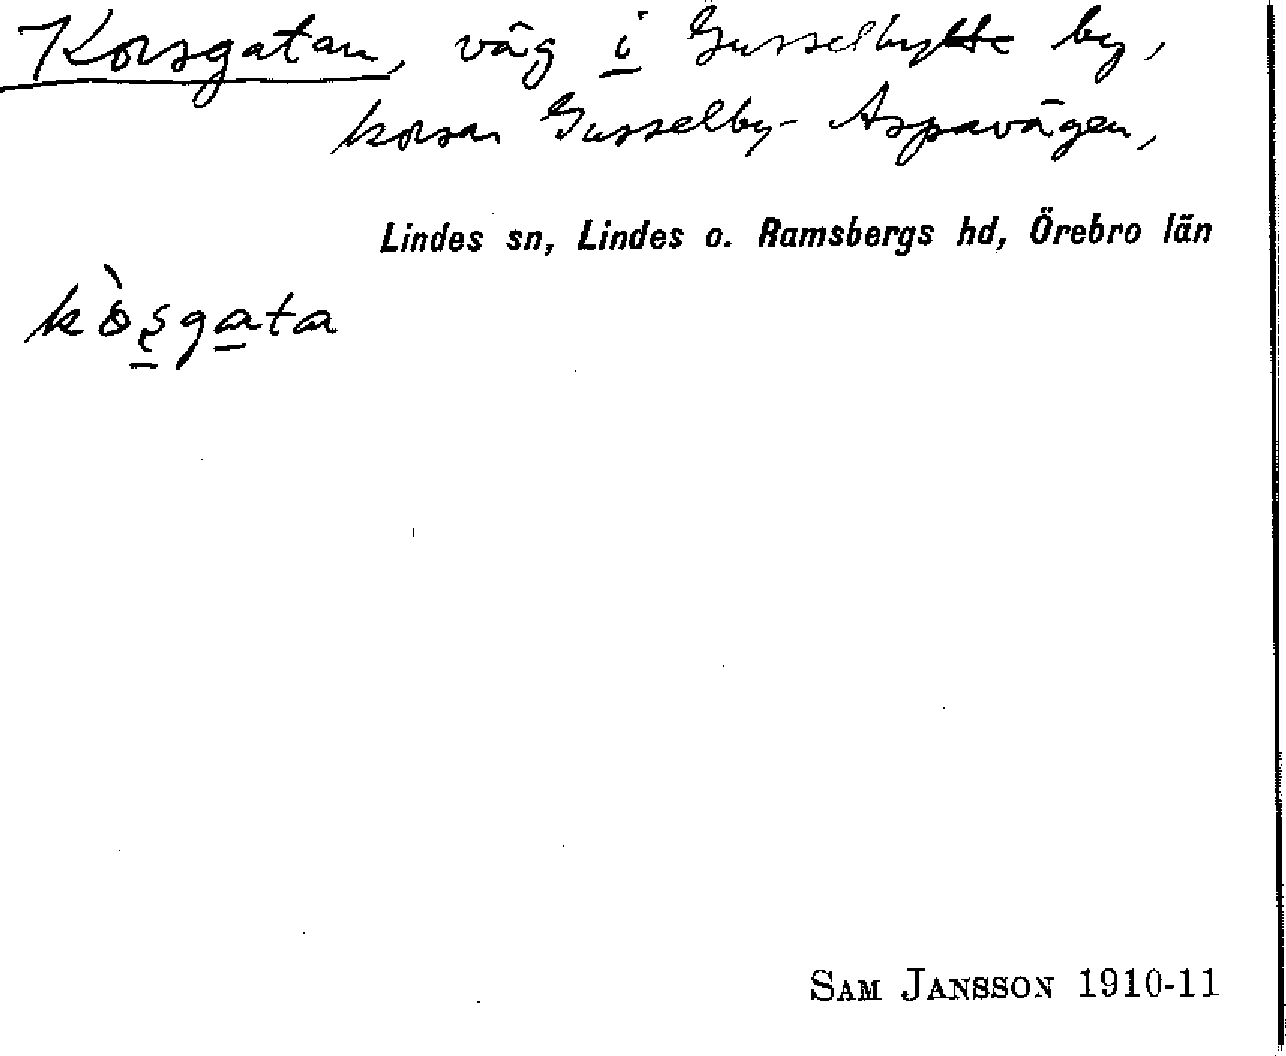 Korsgatan, väg i Gusselbytte by,
korsar Gusselby-Aspavägen,
Lindes sn, Lindes o. Ramsbergs hd, Örebro län
kòs̱ga̱ta
SAM JANSSON 1910-11